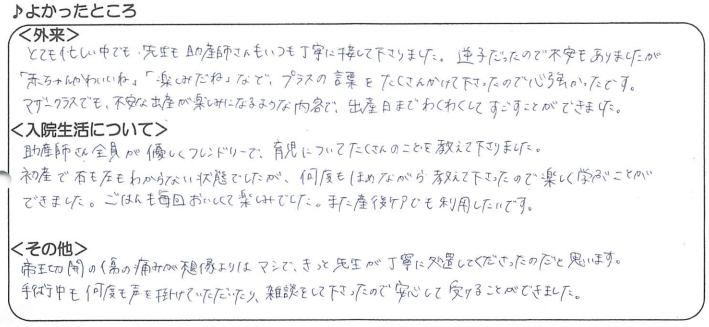 ♪よかったところ
＜外来＞
とても忙しい中でも、先生も助産師さんもいつも丁寧に接して下さりました。逆子だったので不安もありましたが
「赤ちゃんかわいいね」「楽しみだね」などで、プラスの言葉をたくさんかけて下さったので心強かったです。
マザークラスでも、不安な出産が楽しみになるような内容で、出産日までわくわくしてすごすことができました。
＜入院生活について＞
助産師さん全員が優しくフレンドリーで、育児についてたくさんのことを教えて下さりました。
初産で右も左もわからない状態でしたが、何度もほめながら教えて下さったので楽しく学ぶことが
できました。ごはんも毎回おいしくて楽しみでした。また産後ケアでも利用したいです。
＜その他＞
帝王切開の傷の痛みが想像よりはマシで、きっと先生が丁寧に処置してくださったのだと思います。
手術中も何度も声を掛けていただいたり、雑談をして下さったので安心して受けることができました。